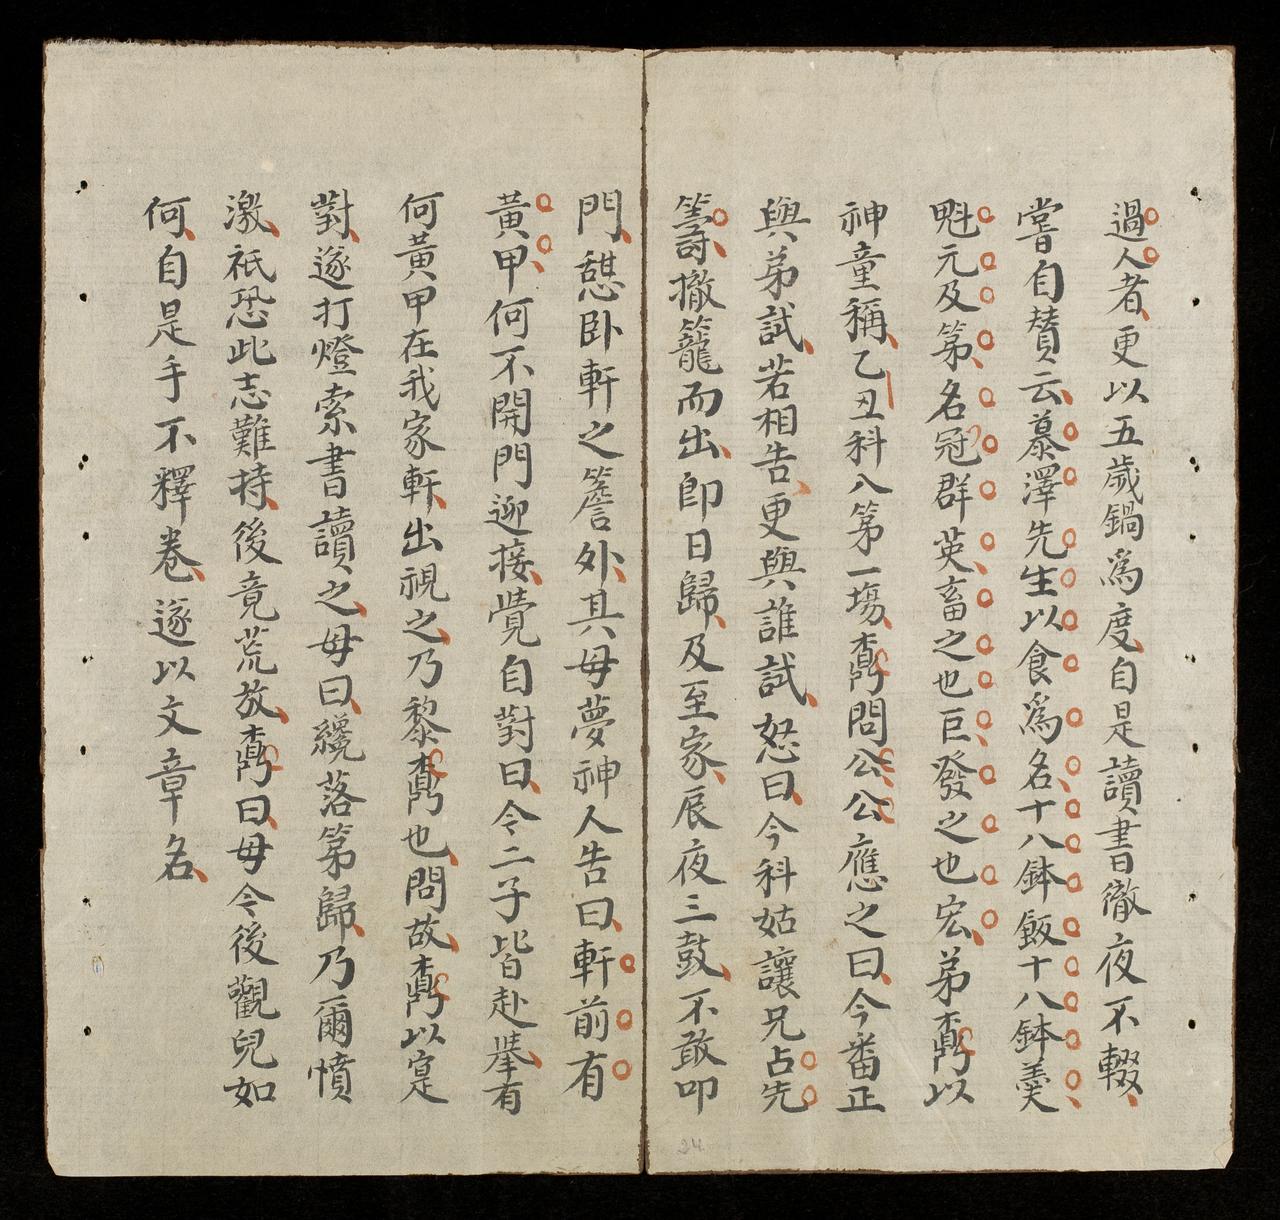 過人者更以五歲鍋爲度自是讀書徹夜不輟
嘗自賛云慕澤先生以食爲名十八鉢飯十八鉢羹
魁元及第名冠群英畜之也巨發之也宏弟鼒以
神童稱乙丑科入第一塲鼒問公公應之曰今番正
與弟試若相告更與誰試怒曰今科姑讓兄占先
籌撤籠而出即日歸及至家辰夜三鼓不敢叩
門憇卧軒之簷外其母夢神人告曰軒前有
黃甲何不開門迎接覺自對曰今二子皆赴擧有
何黃甲在我家軒出視之乃黎鼒也問故鼒以寔
對遂打燈索書讀之母曰纔落第歸乃爾憤
激祇恐此志難持後竟荒放鼒曰母今後觀兒如
何自是手不釋卷遂以文章名
24